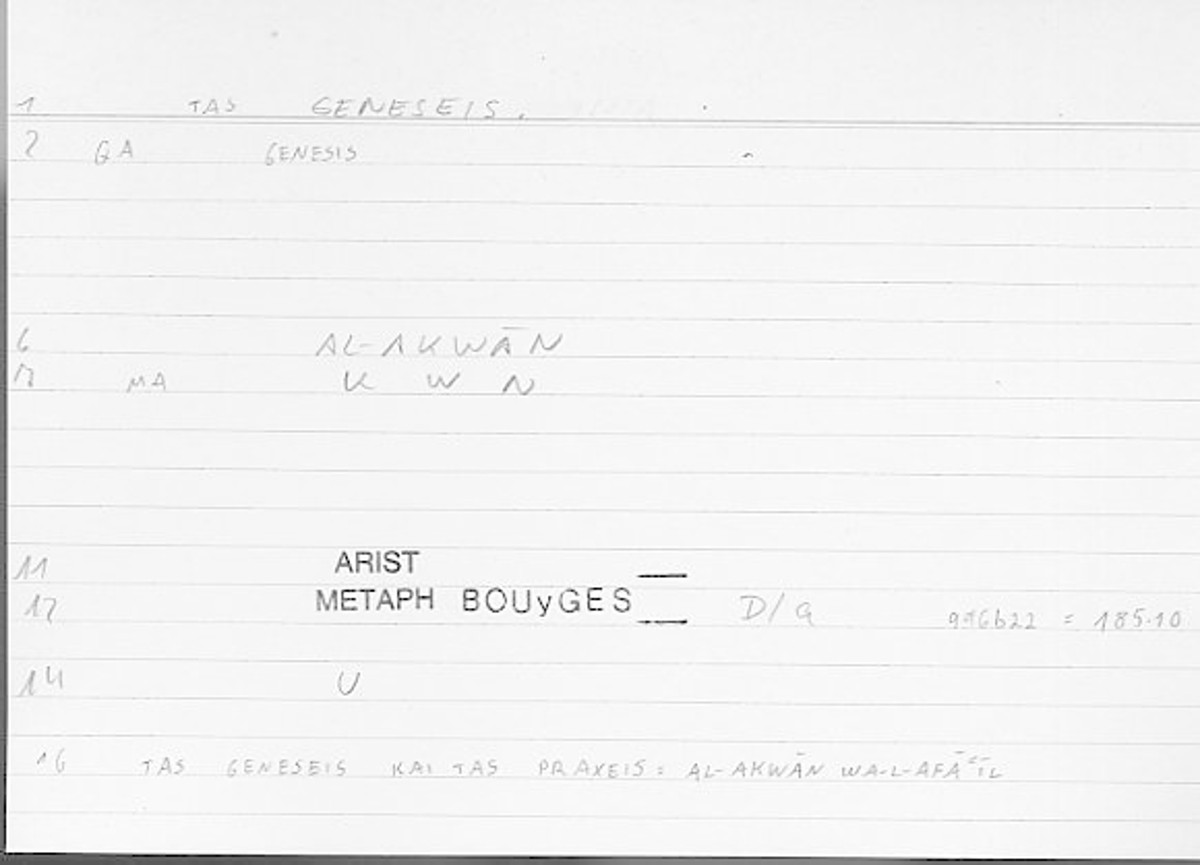 1 TAS GENESEIS.
2 GA GENESIS
6 AL-AKWĀN
MA K W N
11 ARIST
12 METAPH BOUyGES D/a 996b22 = 185.10
14 U
16 TAS GENESEIS KAI TAS PRAXEIS: AL-AKWĀN WA-L-AFĀʿĪL